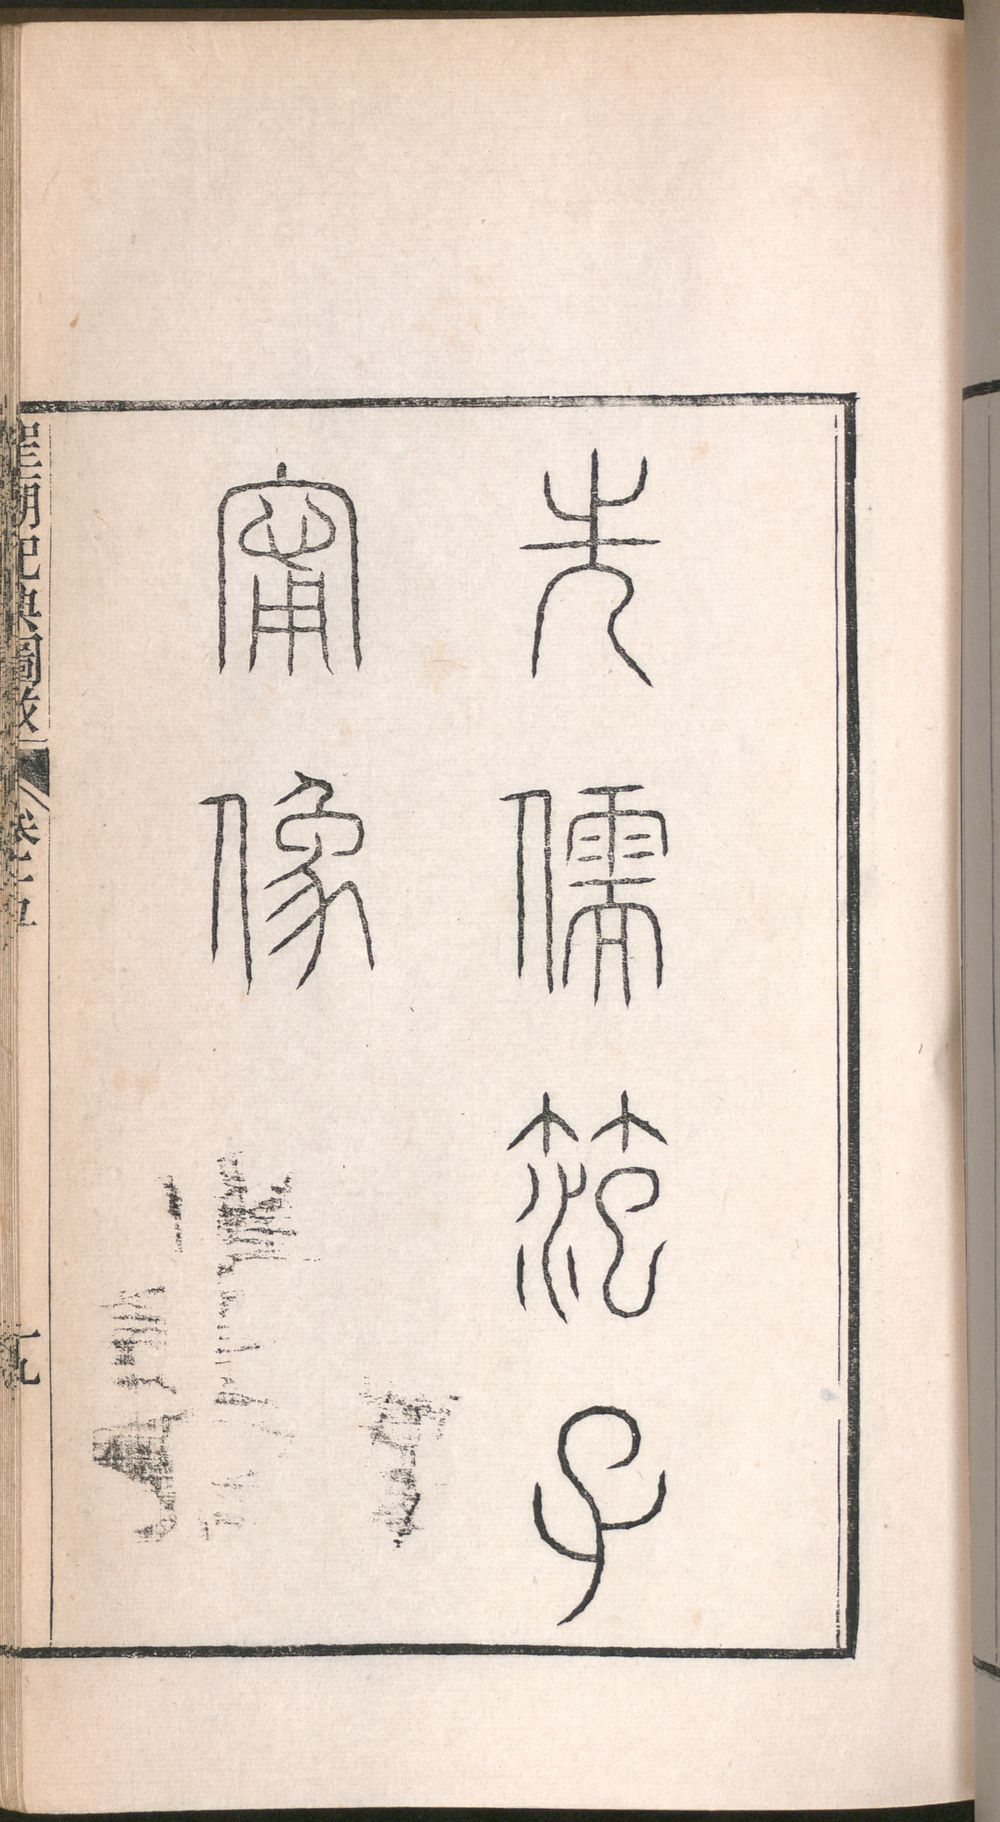 先儒范子
甯像
聖朝祀典圖攷
卷五
十九